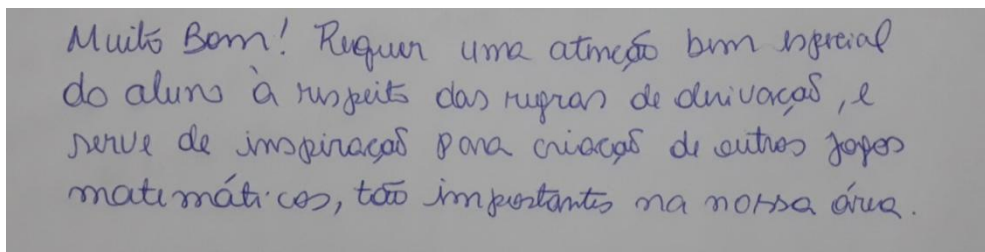 Muito Bom! Requer uma atenção bem especial
do aluno à respeito das regras de derivação, e
serve de inspiração para criação de outros jogos
matemáticos, tão importantes na nossa área.